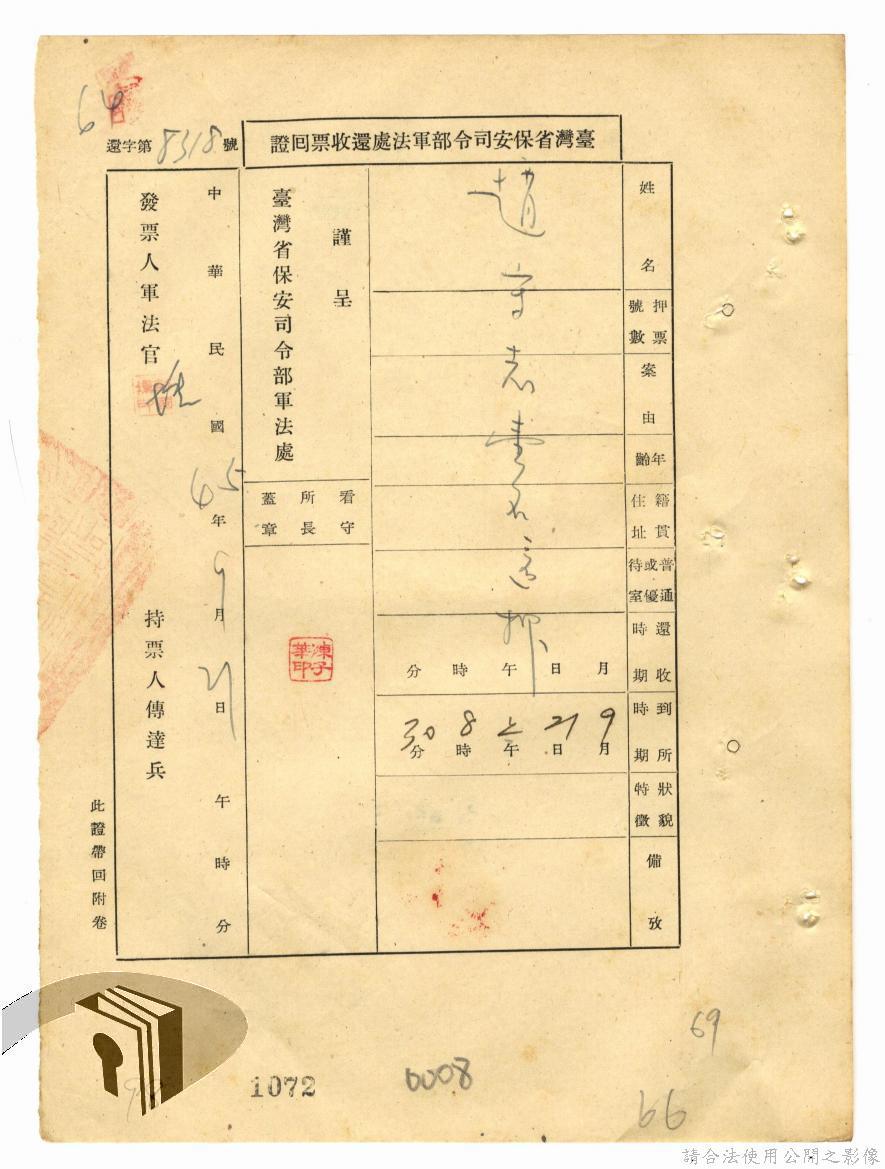 64
還字第8318號
臺灣省保安司令部軍法處還收票回證
姓名
趙守志壹名還押
押票號數
案由
年齡
籍貫住址
普通或優待室
還收時期
月日午時分
到所時期
9月21日上午8時30分
狀貌特徵
備攷
謹呈
臺灣省保安司令部軍法處
看守所所長蓋章
陳子華印
中華民國45年9月21日午時分
發票人軍法官
持票人傳達兵
此證帶回附卷
69
1072
0008
66
請合法使用公開之影像